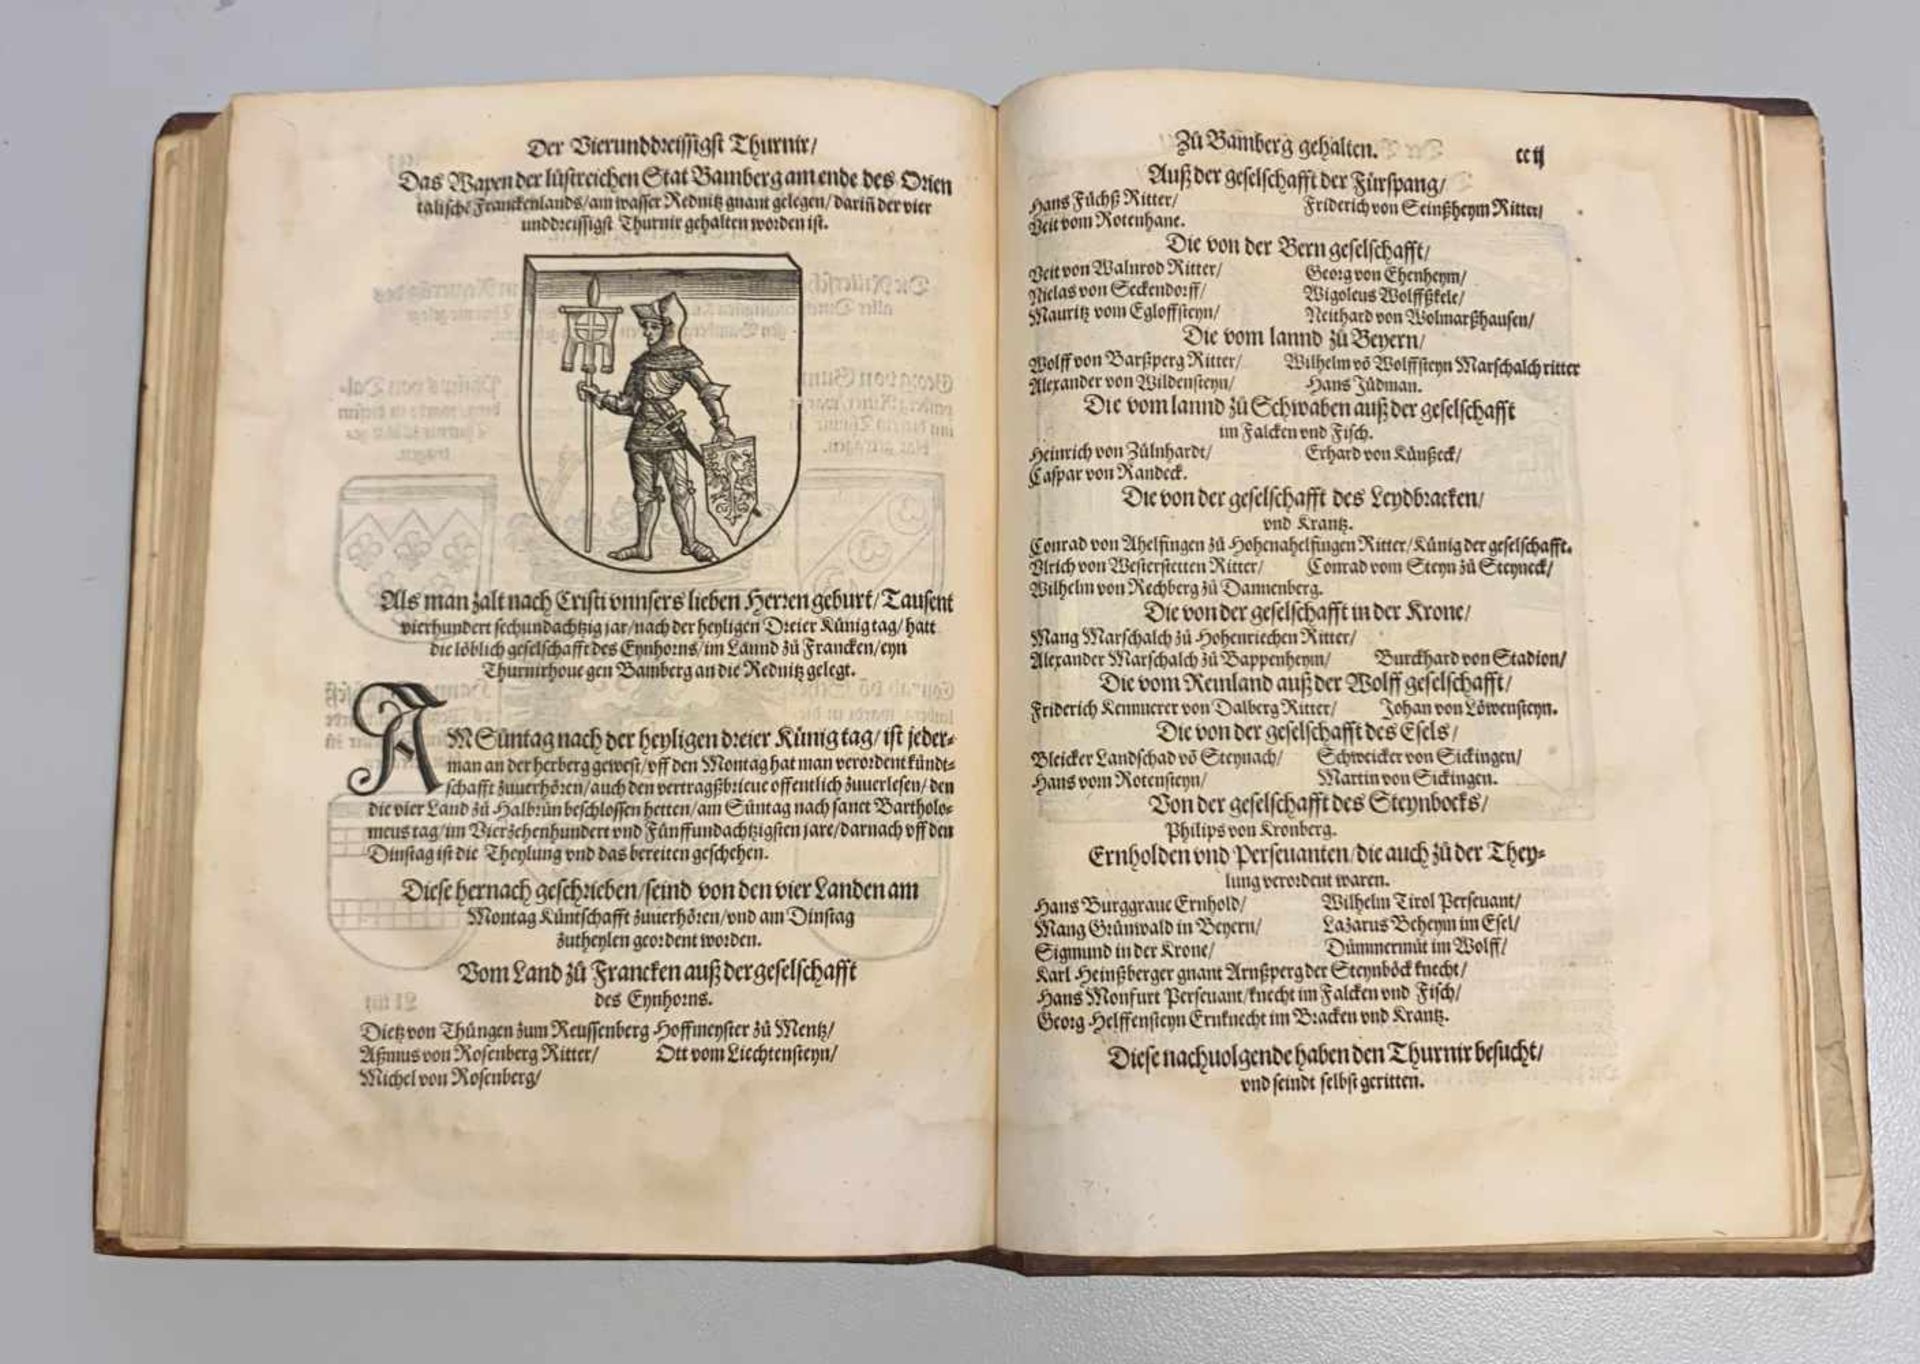 Der Vierunddreissigst Thurnir/
Das Wapen der lüstreichen Stat Bamberg am ende des Orien
talische Franckenlands/am wasser Rednitz gnant gelegen/dariñ der vier
unddreissigst Thurnir gehalten worden ist.
Als man zalt nach Cristi vnnsers lieben Herren geburt/Tausent
vierhundert sechundachtzig jar/nach der heyligen Dreier Künig tag/hatt
die löblich geselschafft des Eynhorns/im Lannd zü Francken/eyn
Thurnirhoue gen Bamberg an die Rednitz gelegt.
AM Süntag nach der heyligen dreier Künig tag/ist jeder-
man an der herberg gewest/vff den Montag hat man verordent kündt-
schafft zuuerhören/auch den vertragßbrieue offentlich zuuerlesen/den
die vier Land zü Halbrün beschlossen hetten/am Süntag nach sanct Bartholo-
meus tag/im Vierzehenhundert vnd Fünffundachtzigsten jare/darnach vff den
Dinstag ist die Theylung vnd das bereiten geschehen.
Diese hernach geschrieben/seind von den vier Landen am
Montag Küntschafft zuuerhören/vnd am Dinstag
zütheylen geordent worden.
Vom Land zü Francken auß der geselschafft
des Eynhorns.
Dietz von Thüngen zum Reussenberg Hoffmeyster zü Mentz/
Aßmus von Rosenberg Ritter/ Ott vom Liechtensteyn/
Michel von Rosenberg/
Zü Bamberg gehalten. ccij
Auß der geselschafft der Fürspang/
Hans Füchß Ritter/ Friderich von Seinßheym Ritter/
Veit vom Rotenhane.
Die von der Bern geselschafft/
Veit von Walnrod Ritter/ Georg von Ehenheym/
Niclas von Seckendorff/ Wigoleus Wolffßkele/
Mauritz vom Egloffsteyn/ Neithard von Wolmarßhausen/
Die vom lannd zü Beyern/
Wolff von Barßperg Ritter/ Wilhelm võ Wolffsteyn Marschalch ritter
Alexander von Wildensteyn/ Hans Jüdman.
Die vom lannd zü Schwaben auß der geselschafft
im Falcken vnd Fisch.
Heinrich von Zülnhardt/ Erhard von Künßeck/
Caspar von Randeck.
Die von der geselschafft des Leydbracken/
vnd Krantz.
Conrad von Ahelfingen zü Hohenahelfingen Ritter/Künig der geselschafft.
Vlrich von Westerstetten Ritter/ Conrad vom Steyn zü Steyneck/
Wilhelm von Rechberg zü Dannenberg.
Die von der geselschafft in der Krone/
Mang Marschalch zü Hohenriechen Ritter/
Alexander Marschalch zü Bappenheym/ Burckhard von Stadion/
Die vom Reinland auß der Wolff geselschafft/
Friderich Kemmerer von Dalberg Ritter/ Johan von Löwensteyn.
Die von der geselschafft des Esels/
Bleicker Landschad võ Steynach/ Schweicker von Sickingen/
Hans vom Rotensteyn/ Martin von Sickingen.
Von der geselschafft des Steynbocks/
Philips von Kronberg.
Ernholden vnd Perseuanten/die auch zü der They-
lung verordent waren.
Hans Burggraue Ernhold/ Wilhelm Tirol Perseuant/
Mang Grünwald in Beyern/ Lazarus Beheym im Esel/
Sigmund in der Krone/ Dümmermüt im Wolff/
Karl Heinßberger gnant Arnßperg der Steynböck knecht/
Hans Monfurt Perseuant/knecht im Falcken vnd Fisch/
Georg Helffensteyn Ernknecht im Bracken vnd Krantz.
Diese nachuolgende haben den Thurnir besucht/
vnd seindt selbst geritten.